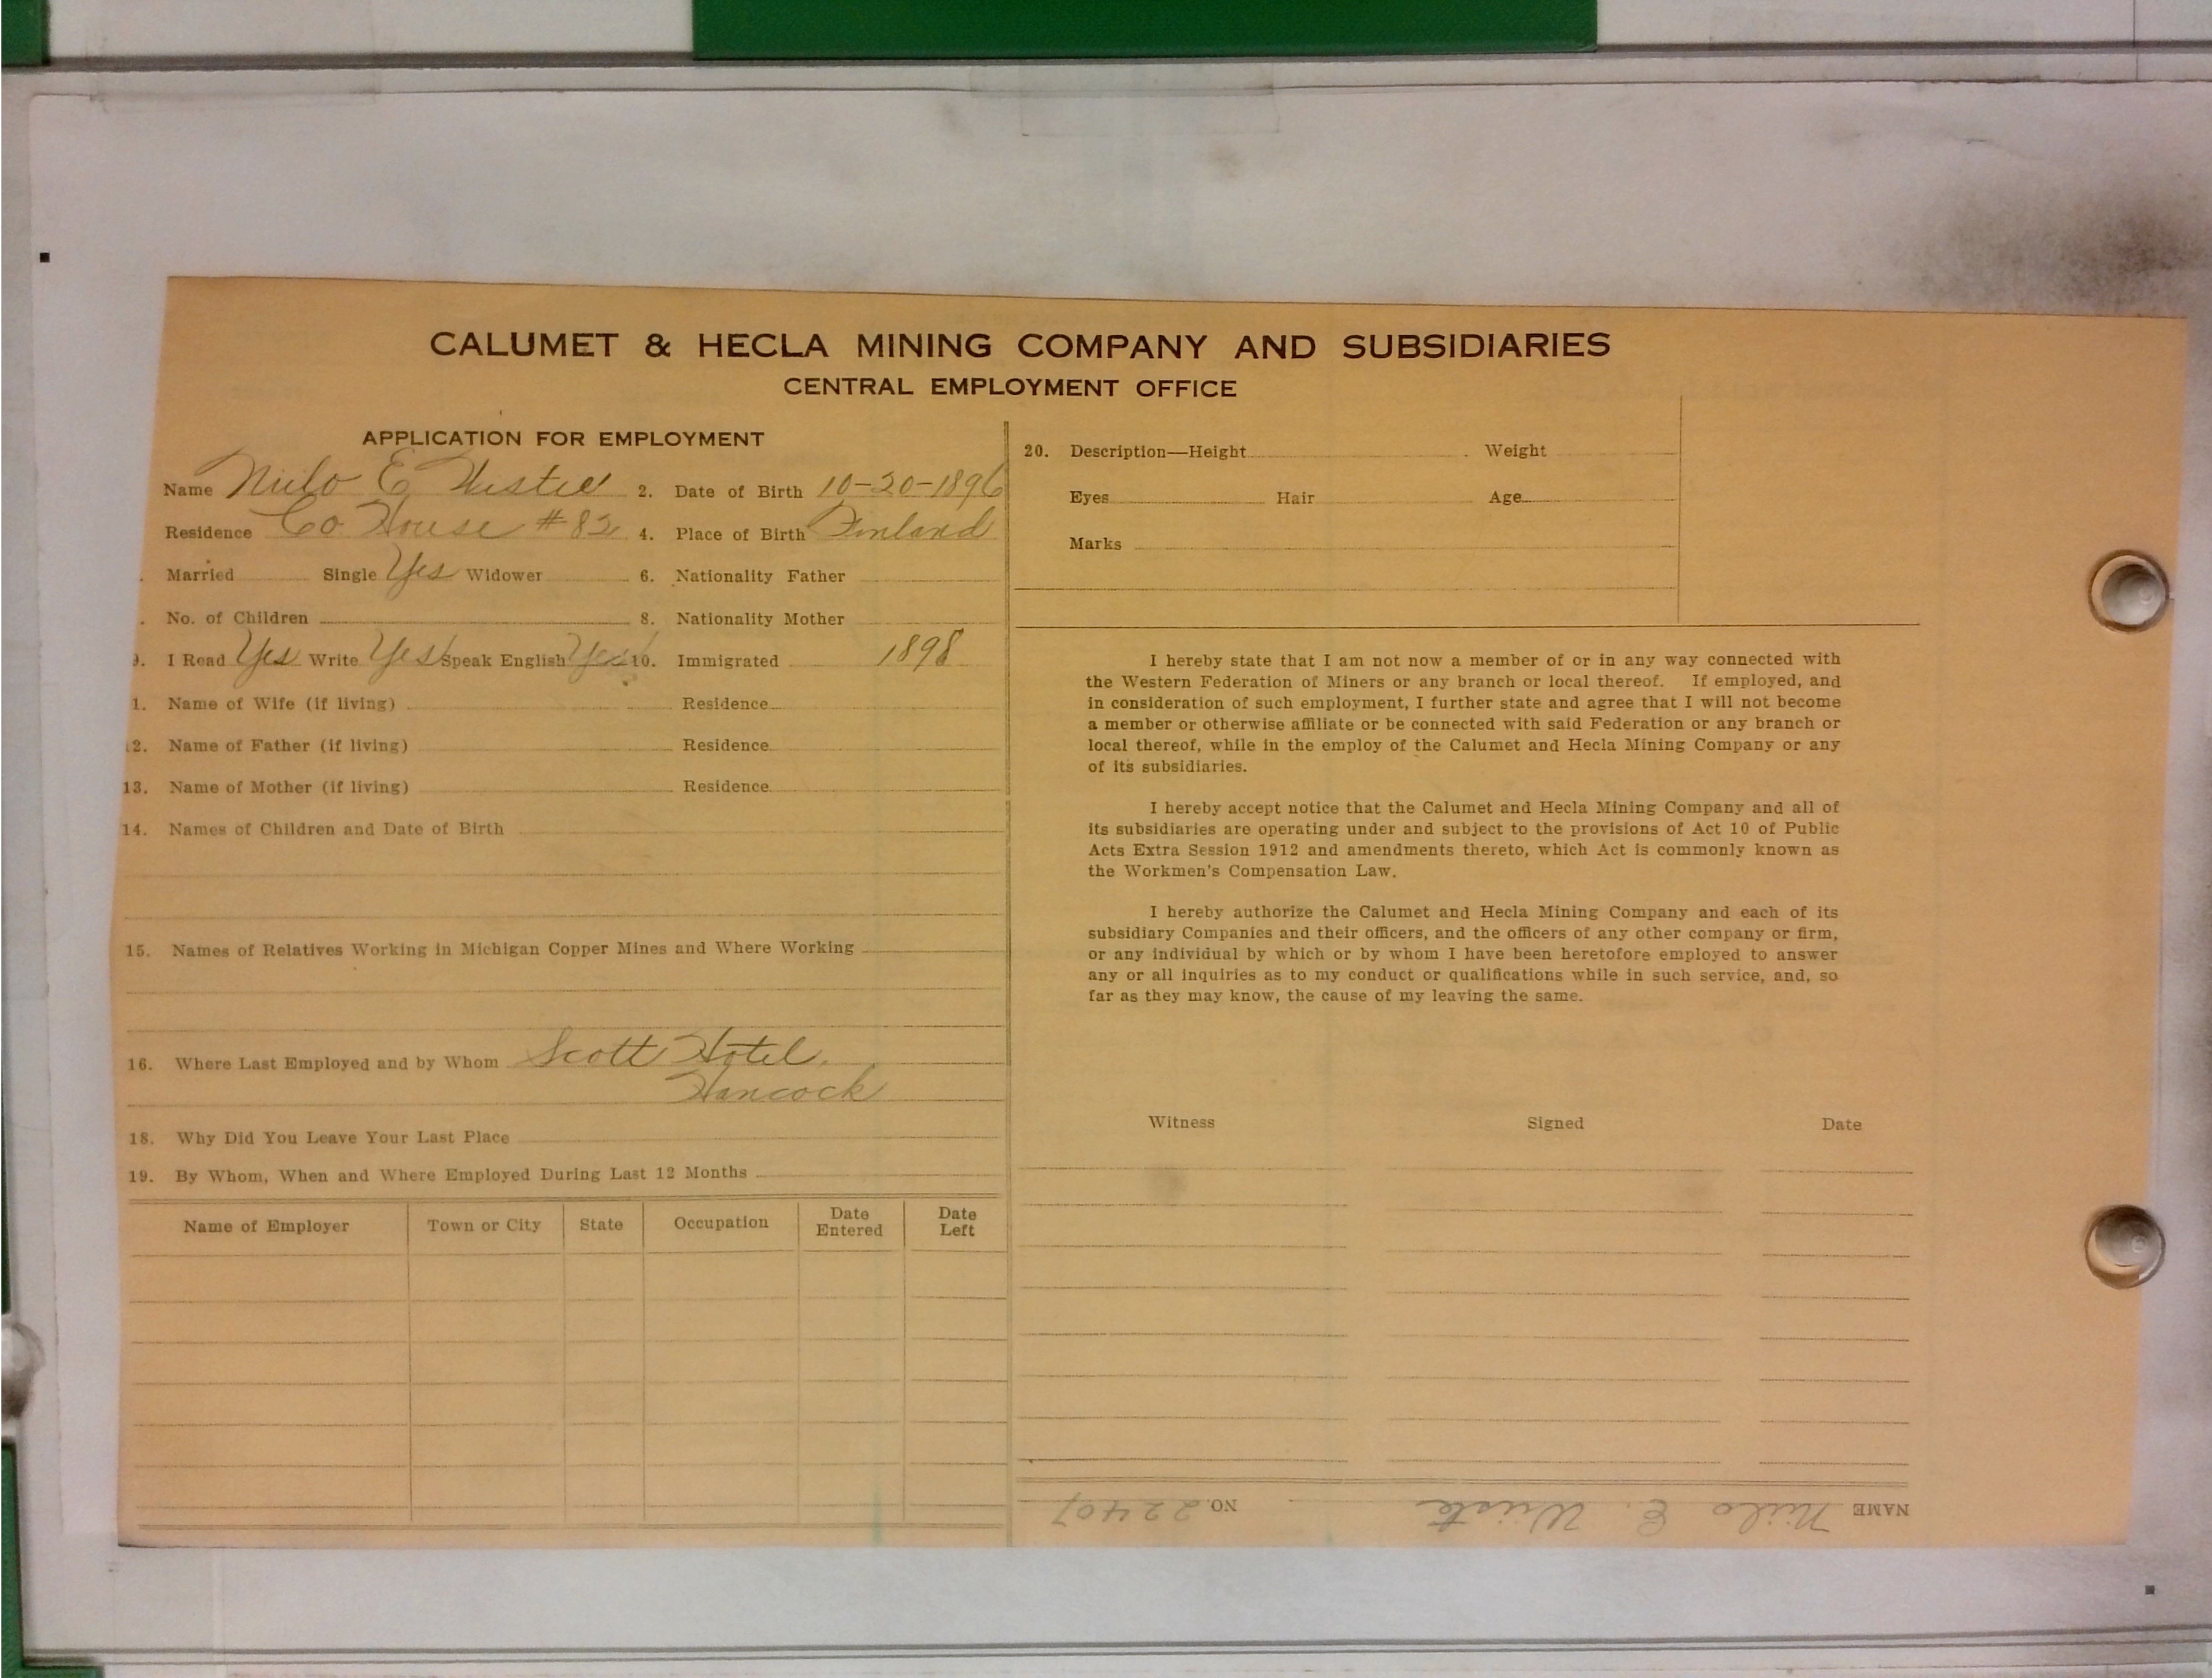 CALUMET & HECLA MINING COMPANY AND SUBSIDIARIES
CENTRAL EMPLOYMENT OFFICE
APPLICATION FOR EMPLOYMENT
Name Niilo E 2. Date of Birth 10-20-1896
Residence Co House #82 4. Place of Birth Finland
. Married Single Yes Widower 6. Nationality Father
. No. of Children 8. Nationality Mother
9. I Read Yes Write Yes Speak English Yes 10. Immigrated 1898
1. Name of Wife (if living) Residence
12. Name of Father (if living) Residence
13. Name of Mother (if living) Residence
14. Names of Children and Date of Birth
15. Names of Relatives Working in Michigan Copper Mines and Where Working
16. Where Last Employed and by Whom Scott Hotel.
Hancock
18. Why Did You Leave Your Last Place
19. By Whom, When and Where Employed During Last 12 Months
Name of Employer Town or City State Occupation Date Entered Date Left
20. Description—Height Weight
Eyes Hair Age
Marks
I hereby state that I am not now a member of or in any way connected with
the Western Federation of Miners or any branch or local thereof. If employed, and
in consideration of such employment, I further state and agree that I will not become
a member or otherwise affiliate or be connected with said Federation or any branch or
local thereof, while in the employ of the Calumet and Hecla Mining Company or any
of its subsidiaries.
I hereby accept notice that the Calumet and Hecla Mining Company and all of
its subsidiaries are operating under and subject to the provisions of Act 10 of Public
Acts Extra Session 1912 and amendments thereto, which Act is commonly known as
the Workmen's Compensation Law.
I hereby authorize the Calumet and Hecla Mining Company and each of its
subsidiary Companies and their officers, and the officers of any other company or firm,
or any individual by which or by whom I have been heretofore employed to answer
any or all inquiries as to my conduct or qualifications while in such service, and, so
far as they may know, the cause of my leaving the same.
Witness Signed Date
NAME Niilo E. NO. 22407